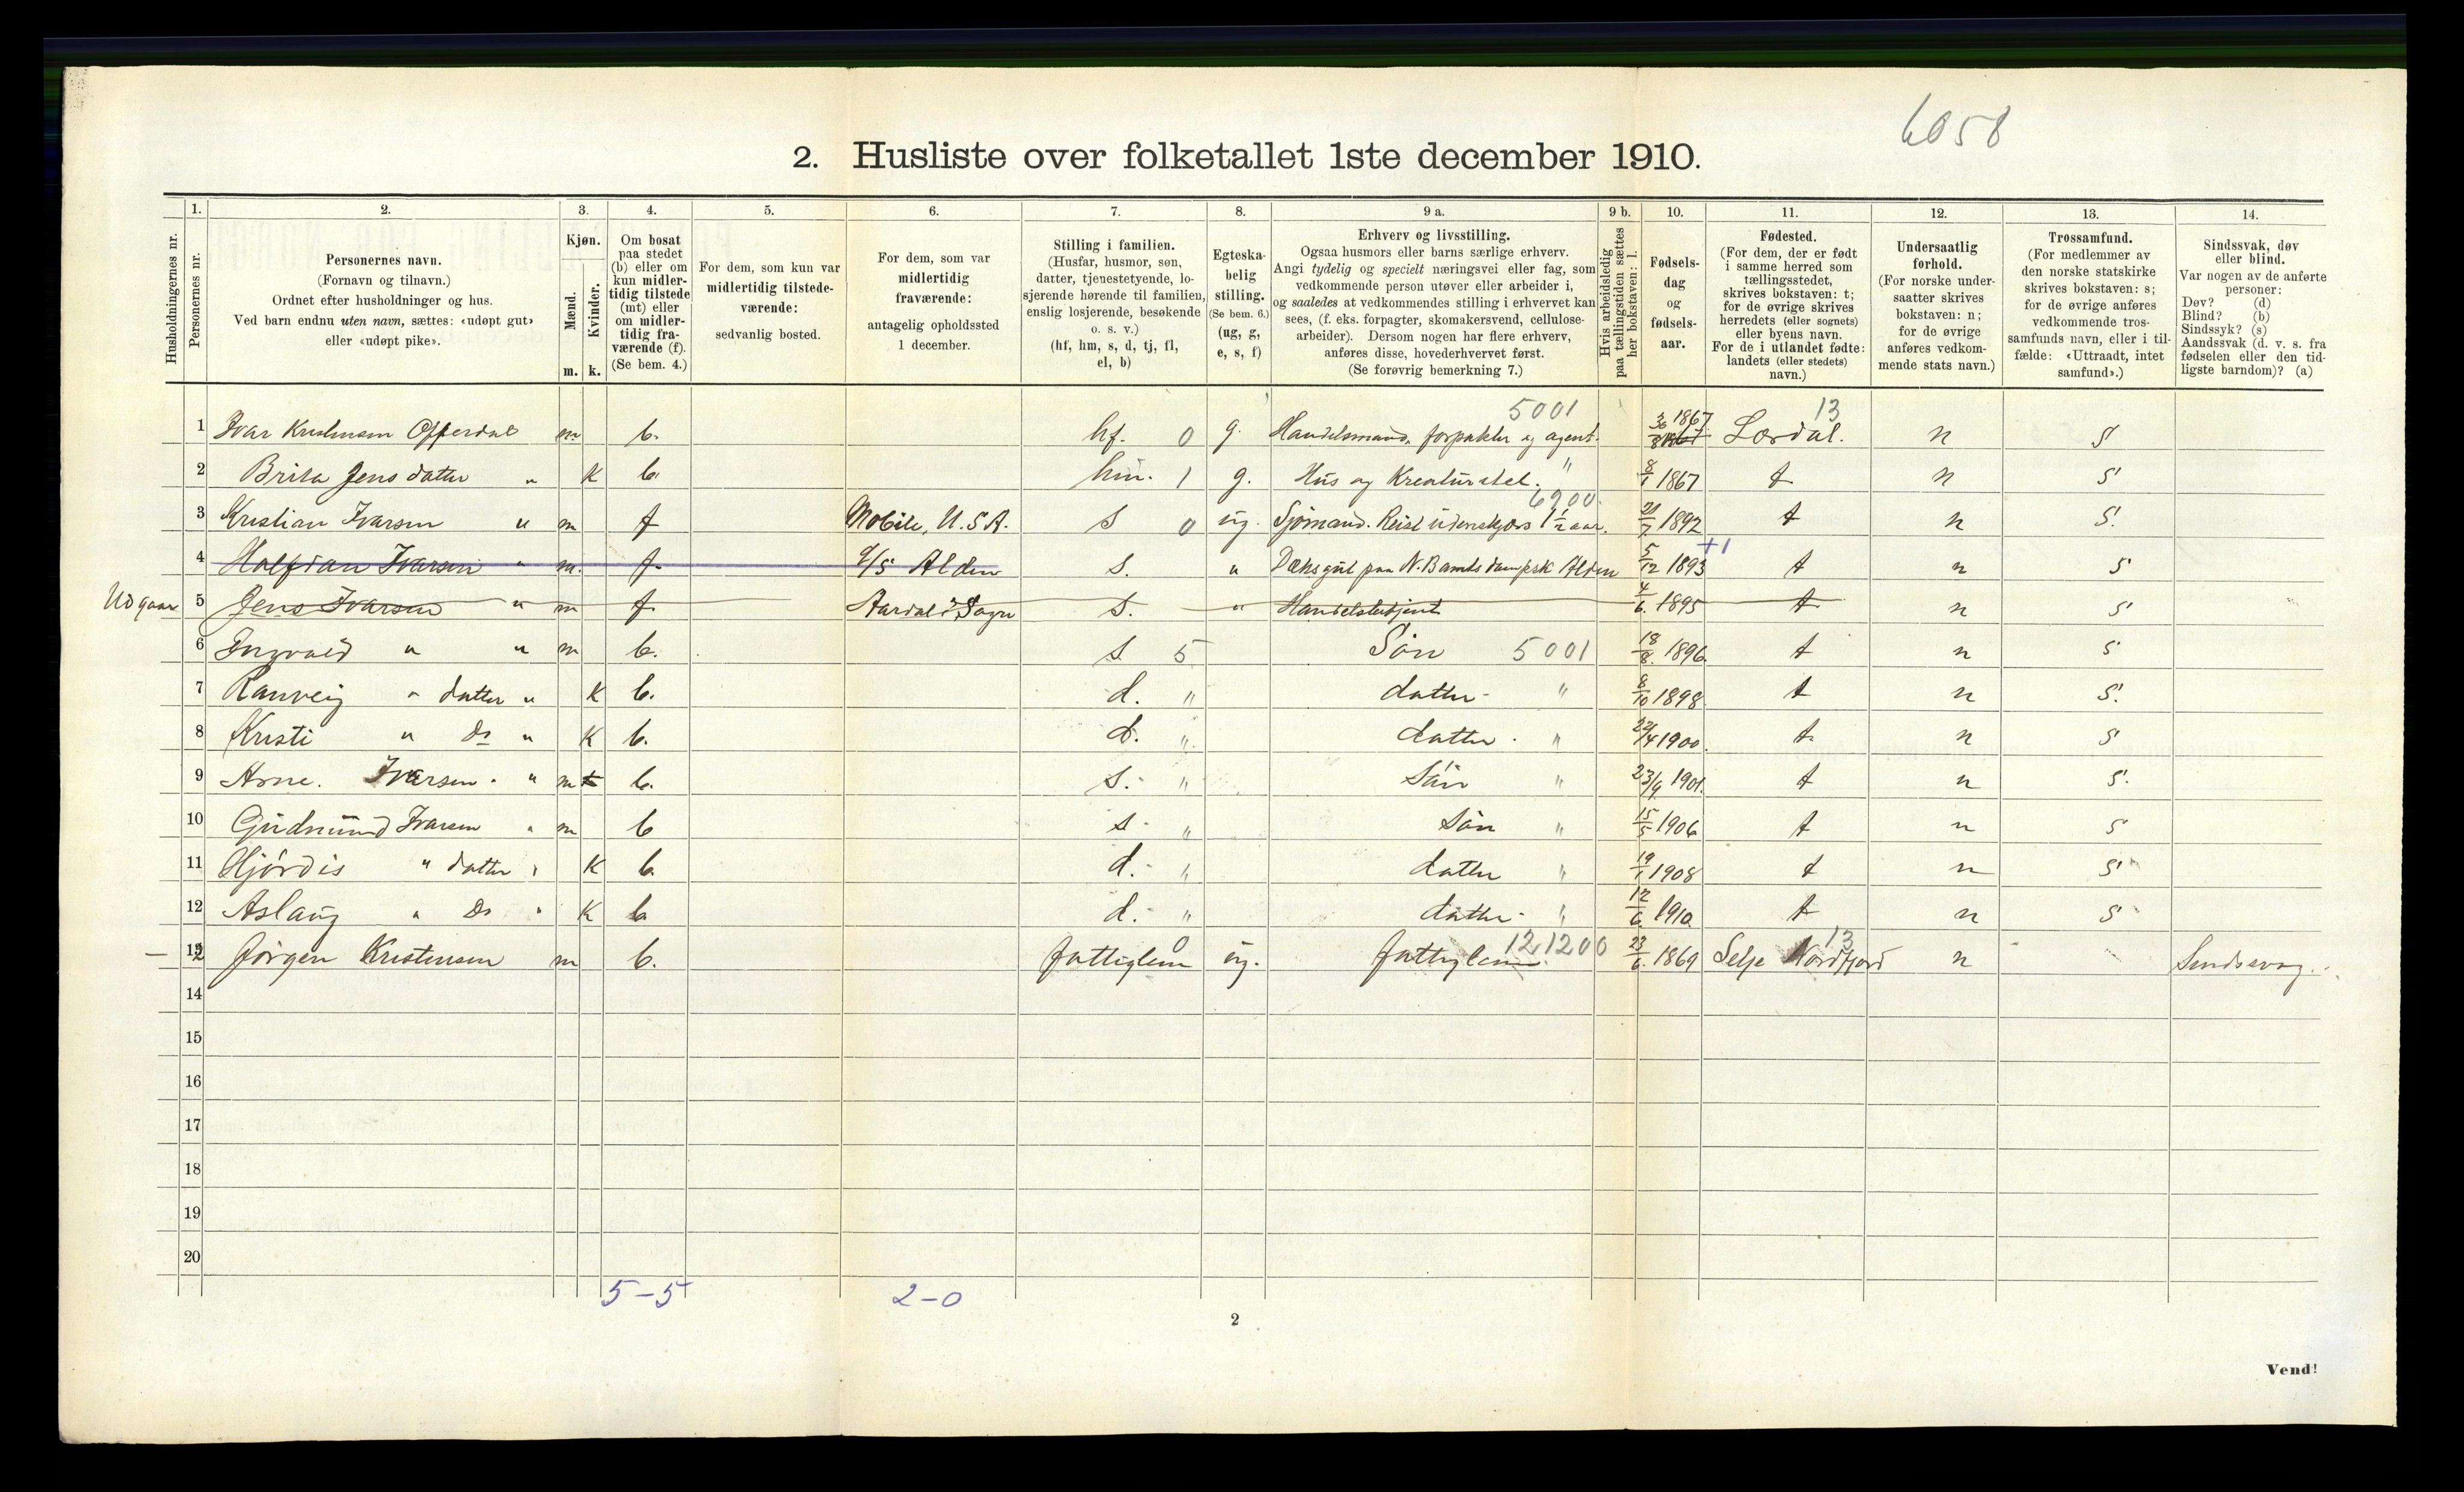 6058
2. Husliste over folketallet 1ste december 1910.
Husholdningernes nr.
1.
Personernes nr.
2.
Personernes navn.
(Fornavn og tilnavn.)
Ordnet efter husholdninger og hus.
Ved barn endnu uten navn, sættes: «udøpt gut»
eller «udøpt pike».
3.
Kjøn.
Mænd.
Kvinder.
m. k.
4.
Om bosat
paa stedet
(b) eller om
kun midler-
tidig tilstede
(mt) eller
om midler-
tidig fra-
værende (f).
(Se bem. 4.)
5.
For dem, som kun var
midlertidig tilstede-
værende:
sedvanlig bosted.
6.
For dem, som var
midlertidig
fraværende:
antagelig opholdssted
1 december.
7.
Stilling i familien.
(Husfar, husmor, søn,
datter, tjenestetyende, lo-
sjerende hørende til familien,
enslig losjerende, besøkende
o. s. v.)
(hf, hm, s, d, tj, fl,
el, b)
8.
Egteska-
belig
stilling.
(Se bem. 6.)
(ug, g,
e, s, f)
9 a.
Erhverv og livsstilling.
Ogsaa husmors eller barns særlige erhverv.
Angi tydelig og specielt næringsvei eller fag, som
vedkommende person utøver eller arbeider i,
og saaledes at vedkommendes stilling i erhvervet kan
sees, (f. eks. forpagter, skomakersvend, cellulose-
arbeider). Dersom nogen har flere erhverv,
anføres disse, hovederhvervet først.
(Se forøvrig bemerkning 7.)
9 b.
Hvis arbeidsledig
paa tællingstiden sættes
her bokstaven: l.
10.
Fødsels-
dag
og
fødsels-
aar.
11.
Fødested.
(For dem, der er født
i samme herred som
tællingsstedet,
skrives bokstaven: t;
for de øvrige skrives
herredets (eller sognets)
eller byens navn.
For de i utlandet fødte:
landets (eller stedets)
navn.)
12.
Undersaatlig
forhold.
(For norske under-
saatter skrives
bokstaven: n;
for de øvrige
anføres vedkom-
mende stats navn.)
13.
Trossamfund.
(For medlemmer av
den norske statskirke
skrives bokstaven: s;
for de øvrige anføres
vedkommende tros-
samfunds navn, eller i til-
fælde: «Uttraadt, intet
samfund».)
14.
Sindssvak, døv
eller blind.
Var nogen av de anførte
personer:
Døv? (d)
Blind? (b)
Sindssyk? (s)
Aandssvak (d. v. s. fra
fødselen eller den tid-
ligste barndom)? (a)
5001 13
1 Ivar Kristensen Offerdal m b. hf. 0 g. Handelsmand, forpakter og agent. 1867 Lærdal. n s
2 Brita Jensdatter " k b. hm. 1 g. Hus og Kreaturstel. " 8/1 1867 t n s
6900
3 Kristian Ivarsen " m f Mobile, U.S.A. s 0 ug. Sjømand. Reist udenskjærs 1 1/2 aar. 21/7 1892 t n s.
4 Halfdan Ivarsen " m. f. Alden s. " Dæksgut paa N. B.amts dampsk Alden 5/12 1893 +1 t n s
Udgaar 5 Jens Ivarsen " m f. Aardal i Sogn s. " Handelsbetjent 4/6. 1895 t n s
6 Ingvald " " m b. s 5 Søn 5001 18/8. 1896. t n s
7 Ranveig " datter " k b. d. " datter " 8/10 1898 t n s.
8 Kristi " do " k b. d. " datter. " 22/4 1900. t n s
9 Arne. Ivarsen " m b. s. " Søn " 23/9 1901. t n s.
10 Gudmund Ivarsen " m b s " Søn " 15/5 1906 t n s
11 Hjørdis " datter " k b. d. " datter " 19/1 1908 t n s
12 Aslaug " do " k b d. " datter " 12/6. 1910 t n s
13 Jørgen Kristensen m b. fattiglem 0 ug. fattiglem 121200 23/6. 1869 Selje Nordfjord 13 n
14
15
16
17
18
19
20
5-5 2-0
2
Vend!